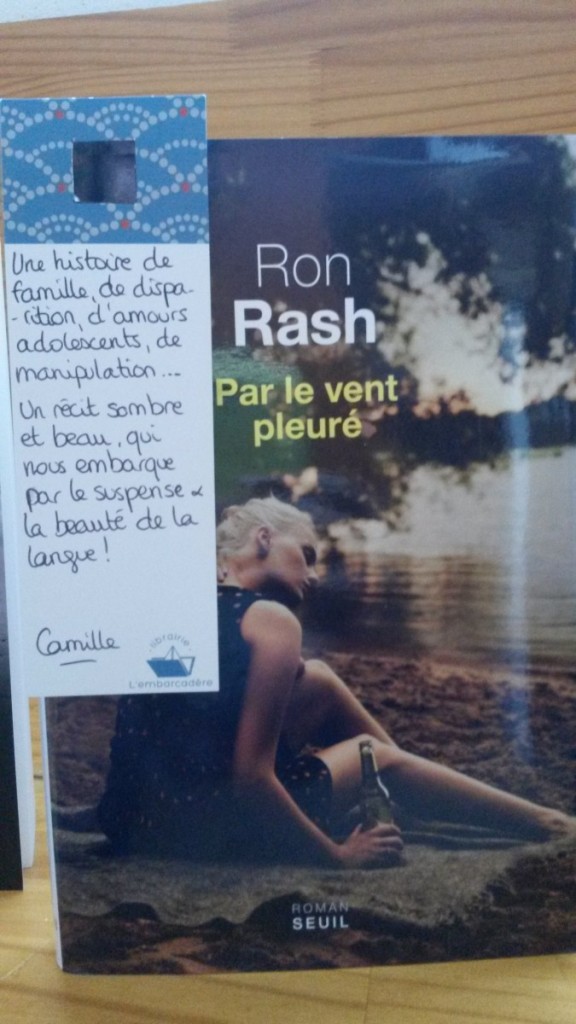 Une histoire de
famille, de dispa-
-rition, d'amours
adolescents, de
manipulation...
Un récit sombre
et beau, qui
nous embarque
par le suspense &
la beauté de la
langue !
Camille
librairie
L'embarcadère
Ron
Rash
Par le vent
pleuré
ROMAN
SEUIL